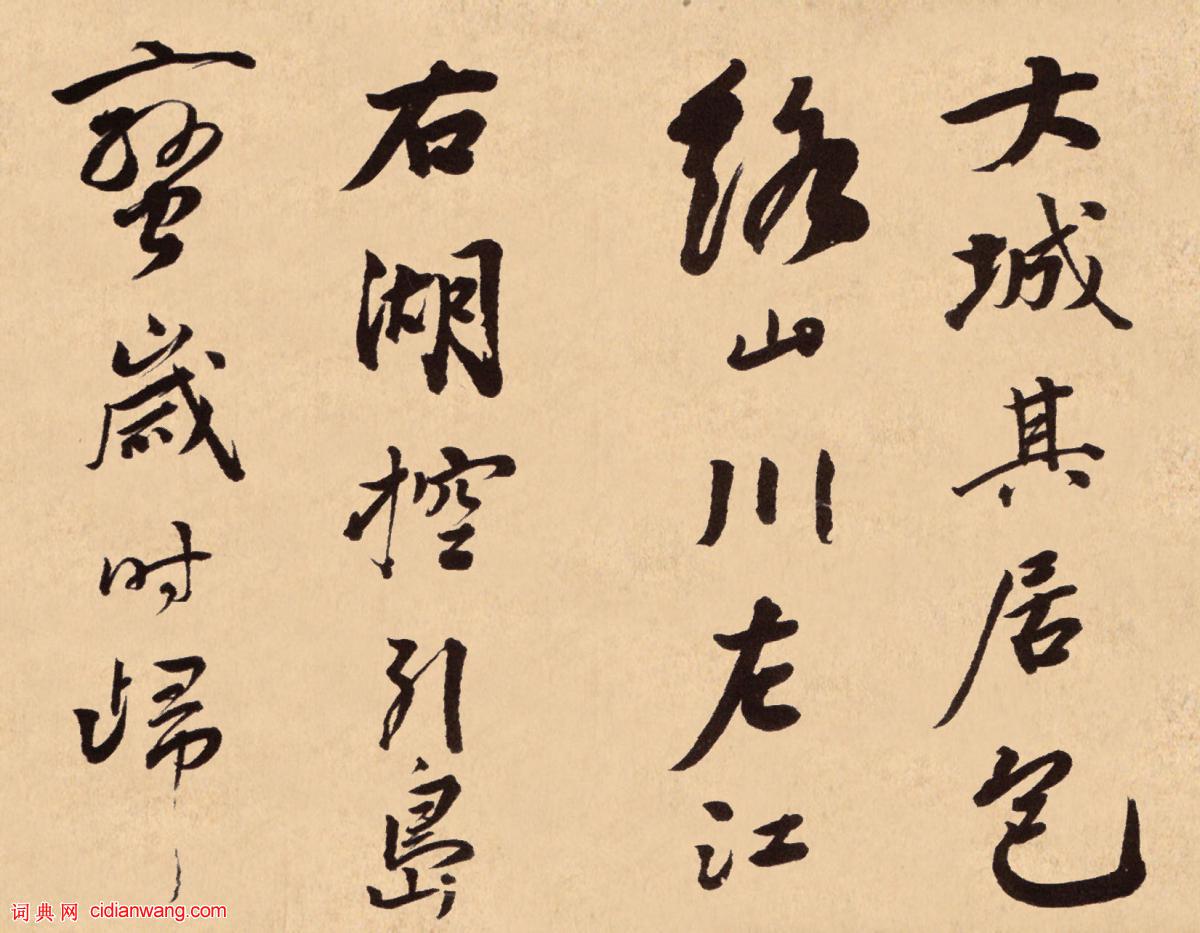 大城其居包
絡山川左江
右湖控引島
蠻歲时歸
词典网 cidianwang.com